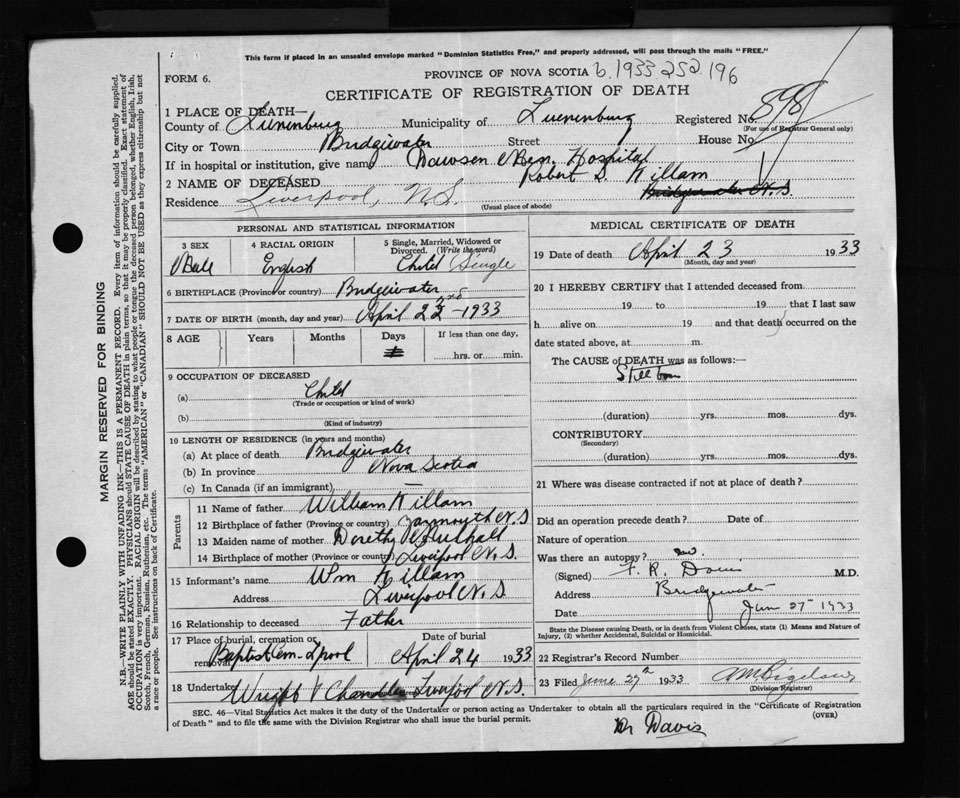 This form if placed in an unsealed envelope marked "Dominion Statistics Free," and properly addressed, will pass through the mails "FREE."
FORM 6.
PROVINCE OF NOVA SCOTIA b. 1933 252 196
CERTIFICATE OF REGISTRATION OF DEATH
1 PLACE OF DEATH—
County of Lunenburg Municipality of Luenenburg Registered No. 898
(For use of Registrar General only)
City or Town Bridgewater Street House No.
If in hospital or institution, give name Dawson Mem. Hospital
2 NAME OF DECEASED Robert S. Killam
Residence Liverpool, N.S. Bridgewater N.S.
(Usual place of abode)
PERSONAL AND STATISTICAL INFORMATION
3 SEX
Male
4 RACIAL ORIGIN
English
5 Single, Married, Widowed or Divorced. (Write the word)
Child Single
6 BIRTHPLACE (Province or country) Bridgewater
7 DATE OF BIRTH (month, day and year) April 22nd - 1933
8 AGE Years Months Days If less than one day,
hrs. or min.
9 OCCUPATION OF DECEASED
(a) Child
(Trade or occupation or kind of work)
(b)
(Kind of industry)
10 LENGTH OF RESIDENCE (in years and months)
(a) At place of death Bridgewater
(b) In province Nova Scotia
(c) In Canada (if an immigrant) —
Parents
11 Name of father William Killam
12 Birthplace of father (Province or country) Yarmouth N.S
13 Maiden name of mother Dorothy
14 Birthplace of mother (Province or country) Liverpool N.S.
15 Informant's name Wm Killam
Address Liverpool N.S
16 Relationship to deceased Father
17 Place of burial, cremation or removal Baptist Cem. Lpool
Date of burial
April 24 1933
18 Undertaker Wright & Chandler Liverpool N.S.
MEDICAL CERTIFICATE OF DEATH
19 Date of death April 23 1933
(Month, day and year)
20 I HEREBY CERTIFY that I attended deceased from
19 to 19 , that I last saw
h alive on 19 and that death occurred on the
date stated above, at m.
The CAUSE of DEATH was as follows:—
(duration) yrs. mos. dys.
CONTRIBUTORY
(Secondary)
(duration) yrs. mos. dys.
21 Where was disease contracted if not at place of death?
Did an operation precede death? Date of
Nature of operation
Was there an autopsy? no.
(Signed) F. R. Davis M.D.
Address Bridgewater
Date Jun 27 1933
State the Disease causing Death, or in death from Violent Causes, state (1) Means and Nature of Injury, (2) whether Accidental, Suicidal or Homicidal.
22 Registrar's Record Number
23 Filed June 27th 1933
(Division Registrar)
SEC. 46—Vital Statistics Act makes it the duty of the Undertaker or person acting as Undertaker to obtain all the particulars required in the "Certificate of Registration of Death" and to file the same with the Division Registrar who shall issue the burial permit.
(OVER)
Dr Davis
MARGIN RESERVED FOR BINDING
N.B.—WRITE PLAINLY WITH UNFADING INK—THIS IS A PERMANENT RECORD. Every item of information should be carefully supplied.
AGE should be stated EXACTLY. PHYSICIANS should STATE CAUSE OF DEATH in plain terms, so that it may be properly classified. Exact statement of
OCCUPATION is very important. RACIAL ORIGIN will be described by stating to what people or tongue the deceased person belonged, whether English, Irish,
Scotch, French, German, Russian, Ruthenian, etc. The terms "AMERICAN" or "CANADIAN" SHOULD NOT BE USED as they express citizenship but not
a race or people. See instructions on back of Certificate.